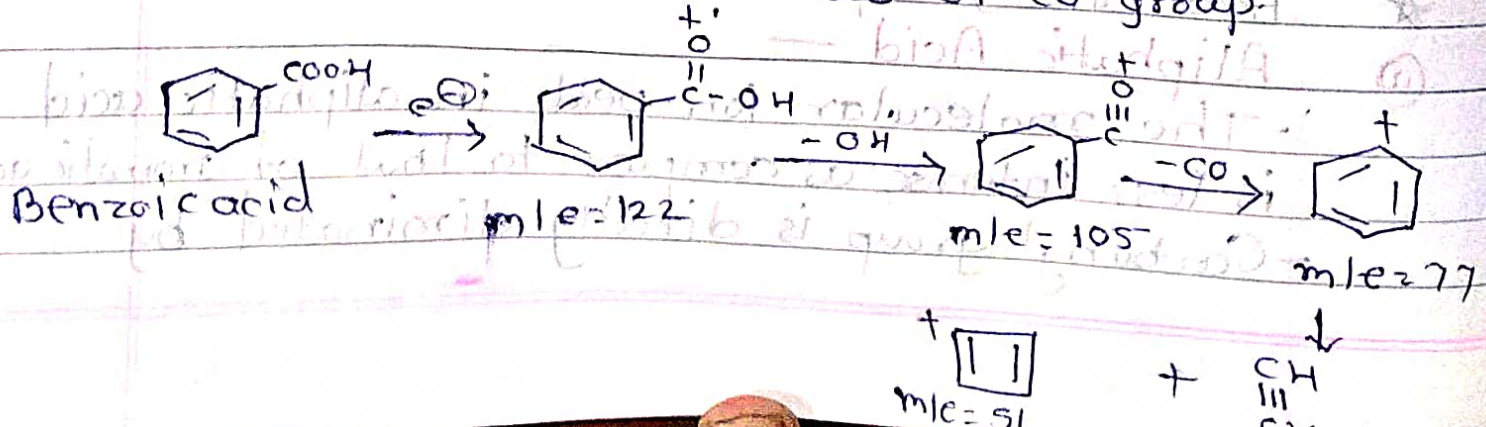 group.
COOH e⊖ +• O || C-OH -OH + O ||| C -CO +
Benzoic acid m/e=122 m/e=105 m/e=77
+ + CH
m/e=51 |||